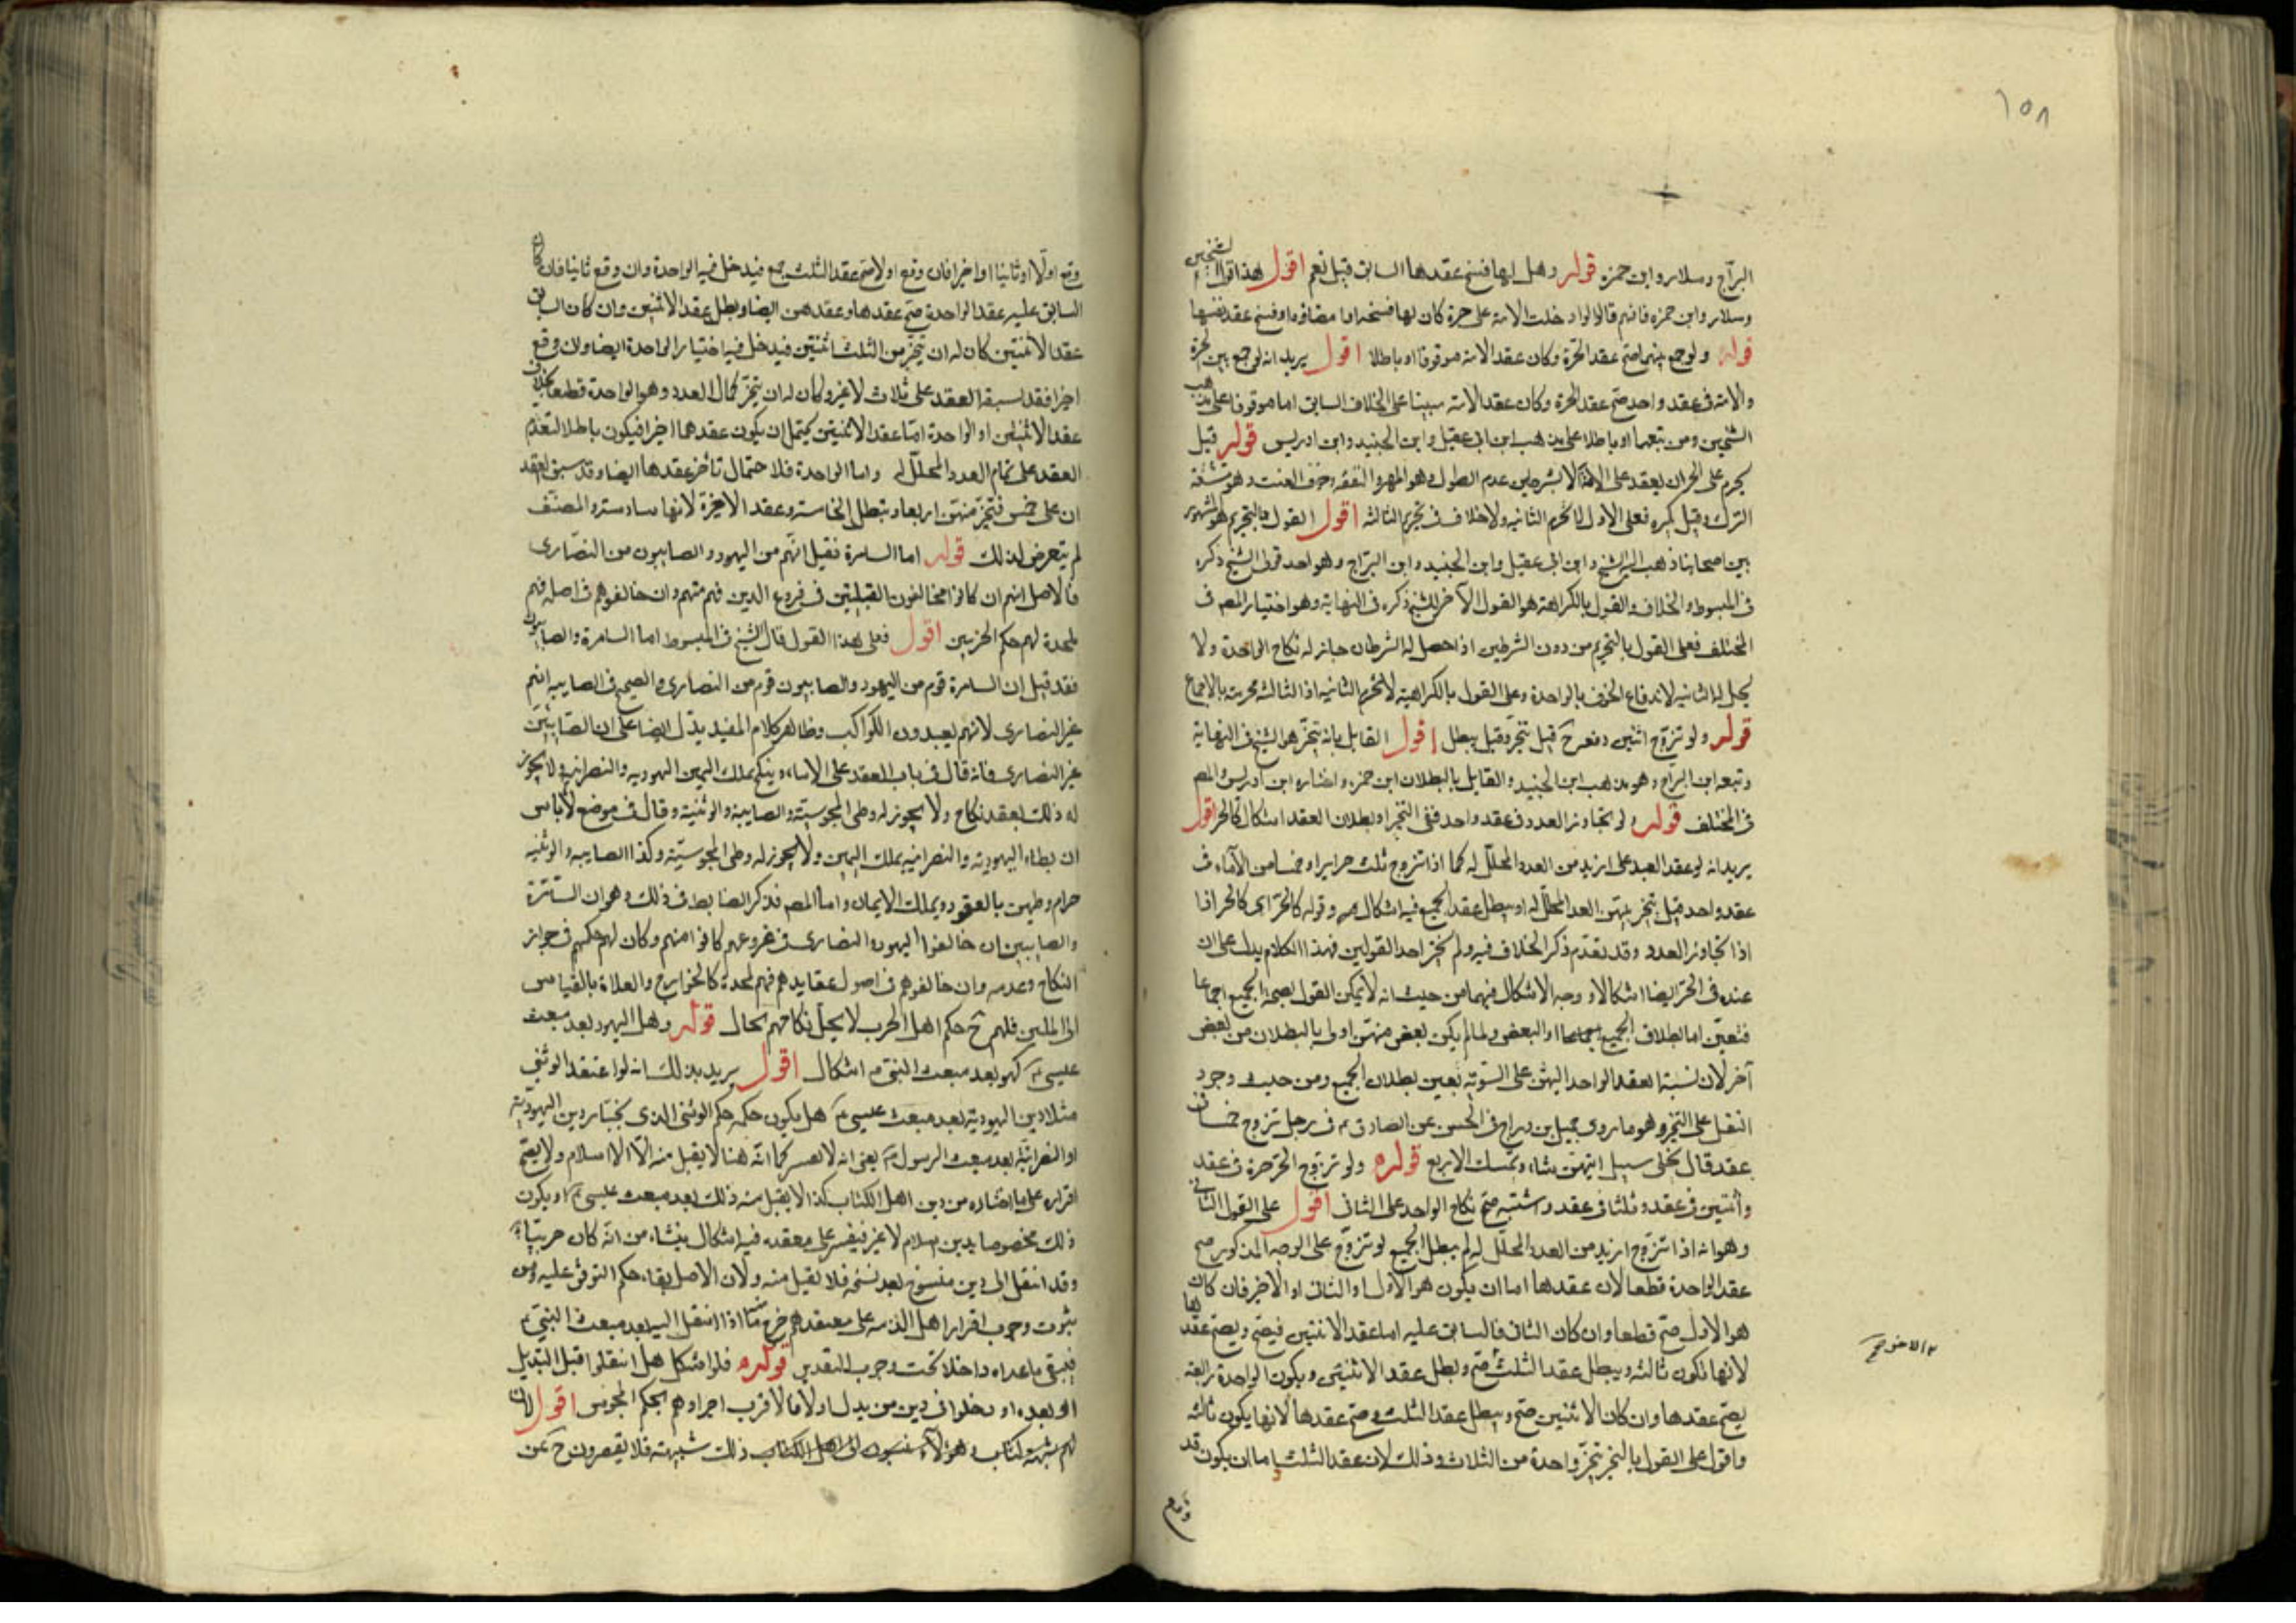 ١٥٨
البرّاج وسلار وابن حمزه قوله وهل لها فسخ عقدها السابق قيل نعم اقول هذا قول الشيخين
وسلار وابن حمزه فانهم قالوا لو ادخلت الامة على حرة كان لها فسخه او امضاؤه او فسخ عقد نفسها
قوله ولو جمع بينهما صح عقد الحرة وكان عقد الامة موقوفا او باطلا اقول يريد انه لو جمع بين الحرة
والامة فى عقد واحد صح عقد الحرة وكان عقد الامة مبينا على الخلاف السابق اما موقوفا على مذهب
الشيخين ومن تبعهما او باطلا على مذهب ابن ابى عقيل وابن الجنيد وابن ادريس قوله قيل
يحرم على الحر ان يعقد على الامة الا بشرطين عدم الطول وهو المهر والنفقه وخوف العنت وهو مشقة
الترك وقيل يكره فعلى الاول تحرم الثانيه ولا خلاف فى تحريم الثالثه اقول القول بالتحريم هو المشهور
بين اصحابنا ذهب اليه الشيخ وابن ابى عقيل وابن الجنيد وابن البرّاج وهو احد قولى الشيخ ذكره
فى المبسوط والخلاف والقول بالكراهة هو القول الآخر للشيخ ذكره فى النهاية وهو اختيار المصم فى
المختلف فعلى القول بالتحريم من دون الشرطين اذا حصل له الشرطان جاز له نكاح الواحدة ولا
يحل له الثانيه لاندفاع الخوف بالواحدة وعلى القول بالكراهية لا تحرم الثانيه اذ الثالثه محرمة بالاجماع
قوله ولو تزوج اثنين دفعة ح قيل يتخير وقيل يبطل اقول القايل بانه يتخير هو الشيخ فى النهاية
وتبعه ابن البراج وهو مذهب ابن الجنيد والقايل بالبطلان ابن حمزه واختاره ابن ادريس والمصم
فى المختلف قوله ولو تجاوز العدد فى عقد واحد ففى التخير او بطلان العقد اشكال كالحر اقول
يريد انه لو عقد العبد على ازيد من العدد المحلل له كما اذا تزوج ثلث حراير او خمسا من الآماء فى
عقد واحد قيل يتخير منهن العدد المحلل له او يبطل عقد الجميع فيه اشكال وقوله كالحر اى كالحر اذا
اذا تجاوز العدد وقد تقدم ذكر الخلاف فيه ولم يختر احد القولين فهذا الكلام يدل على ان
عنده فى الحر ايضا اشكالا ووجه الاشكال فيهما من حيث انه لا يمكن القول بصحة الجميع اجماعا
فتعين اما بطلان الجميع او البعض ولما لم يكن بعض منهن اولى بالبطلان من بعض
آخر لان نسبة العقد الواحد اليهن على السوية تعين بطلان الجميع ومن حيث وجود
النقل على التخير وهو ما روى جميل بن دراج فى الحسن عن الصادق ع فى رجل تزوج خمسا فى
عقد قال يخلى سبيل ايتهن شاء ويمسك الاربع قوله ولو تزوج الحر حرة فى عقد
واثنتين فى عقد وثلثا فى عقد واشتبه صح نكاح الواحد على الثانى اقول على القول الثانى
وهو انه اذا تزوج ازيد من العدد المحلل له لم يبطل الجميع لو تزوج على الوجه المذكور صح
عقد الواحدة قطعا لان عقدها اما ان يكون هو الاول او الثانى او الاخير فان كان
هو الاول صح قطعا وان كان الثانى فالسابق عليه اما عقد الاثنتين فيصح ويصح عقدها
لانها تكون ثالثه ويبطل عقد الثلث صح وبطل عقد الاثنيتن ويكون الواحدة رابعة
يصح عقدها وان كان الاثنين صح ويبطل عقد الثلث وصح عقدها لانها يكون ثالثه
واقول على القول بالتخير يتخير واحدة من الثلاث وذلك لان عقد الثلث اما ان يكون قد
وقع
وقع اولا او ثانيا او اخيرا فان وقع اولا صح عقد الثلث فيدخل فيه الواحدة وان وقع ثانيا فان كان
السابق عليه عقد الواحدة صح عقدها وعقدهن ايضا وبطل عقد الاثنين وان كان السابق
عقد الاثنتين كان له ان يتخير من الثلث اثنتين فيدخل فيه اختيار الواحدة ايضا وان وقع
اخيرا فقد سبقه العقد على ثلاث لا غير وكان له ان يتخير كمال العدد وهو الواحدة قطعا بخلاف
عقد الاثنتين او الواحدة اما عقد الاثنيتن يحتمل ان يكون عقدهما اخيرا فيكون باطلا لتقدم
العقد على تمام العدد المحلل له واما الواحدة فلاحتمال تأخر عقدها ايضا وقد سبق العقد
ان على خمس فتخير منهن اربعا وتبطل الخامسة وعقد الاخيرة لانها سادسة والمصنف
لم يتعرض لذلك قوله اما السامرة فقيل انهم من اليهود والصابيون من النصارى
فالاصل انهم ان كانوا مخالفون القبيلتين فى فروع الدين فهم منهم وان خالفوهم فى اصله فهم
ملحدة لهم حكم الحربيين اقول فعلى هذا القول قال الشيخ فى المبسوط اما السامرة والصابيون
فقد قيل ان السامرة قوم من اليهود والصابيون قوم من النصارى والصحيح فى الصابيه انهم
غير النصارى لانهم يعبدون الكواكب وظاهر كلام المفيد يدل ايضا على ان الصابيين
غير النصارى فانه قال فى باب العقد على الاماء وينكح بملك اليمين اليهوديه والنصرانيه ولا يجوز
له ذلك بعقد نكاح ولا يجوز له وطى المجوسية والصابية والوثنية وقال فى موضع لا باس
ان يطاء اليهودية والنصرانيه بملك اليمين ولا يجوز له وطى المجوسية وكذا الصابيه والوثنيه
حرام وطيهن بالعقود وبملك الايمان واما المصم فذكر الضابط فى ذلك وهو ان السامرة
والصابيين ان خالفوا اليهود والنصارى فى فروعهم كانوا منهم وكان لهم حكمهم فى جواز
النكاح وعدمه وان خالفوهم فى اصول عقايدهم فهم ملحدة كالخوارج والغلاة بالقياس
الى المسلمين فلهم ح حكم اهل الحرب لا يحل نكاحهم بحال قوله وهل اليهود بعد مبعث
عيسى ع كهو بعد مبعث النبى ص اشكال اقول يريد بذلك انه لو اعتقد الوثنى
مثلا دين اليهودية بعد مبعث عيسى ع هل يكون حكمه حكم الوثنى الذى يختار دين اليهودية
او النصرانية بعد مبعث الرسول ص يعنى انه كما انه هنا لا يقبل منه الا الاسلام ولا يصح
اقراره على ما اختاره من دين اهل الكتاب كذا لا يقبل منه ذلك بعد مبعث عيسى ع او يكون
ذلك مخصوصا بدين الاسلام لا غير فيقر على معتقده فيه اشكال ينشاء من انه كان حربيا
وقد انتقل الى دين منسوخ بعد نسخه فلا يقبل منه ولان الاصل بقاء حكم التوثن عليه ومن
ثبوت وجوب اقرار اهل الذمه على معتقدهم خرج منه ما اذا انتقل اليه بعد مبعث النبى ص
فيبقى ما عداه داخلا تحت وجوب التقرير قوله فلو اشكل هل انتقلوا قبل التبديل
او بعده او دخلوا فى دين من بدل او لا فالاقرب اجراؤهم بحكم المجوس اقول لان
لهم شبهة كتاب وهؤلاء ذلك شبهة فلا يقصرون ح عن